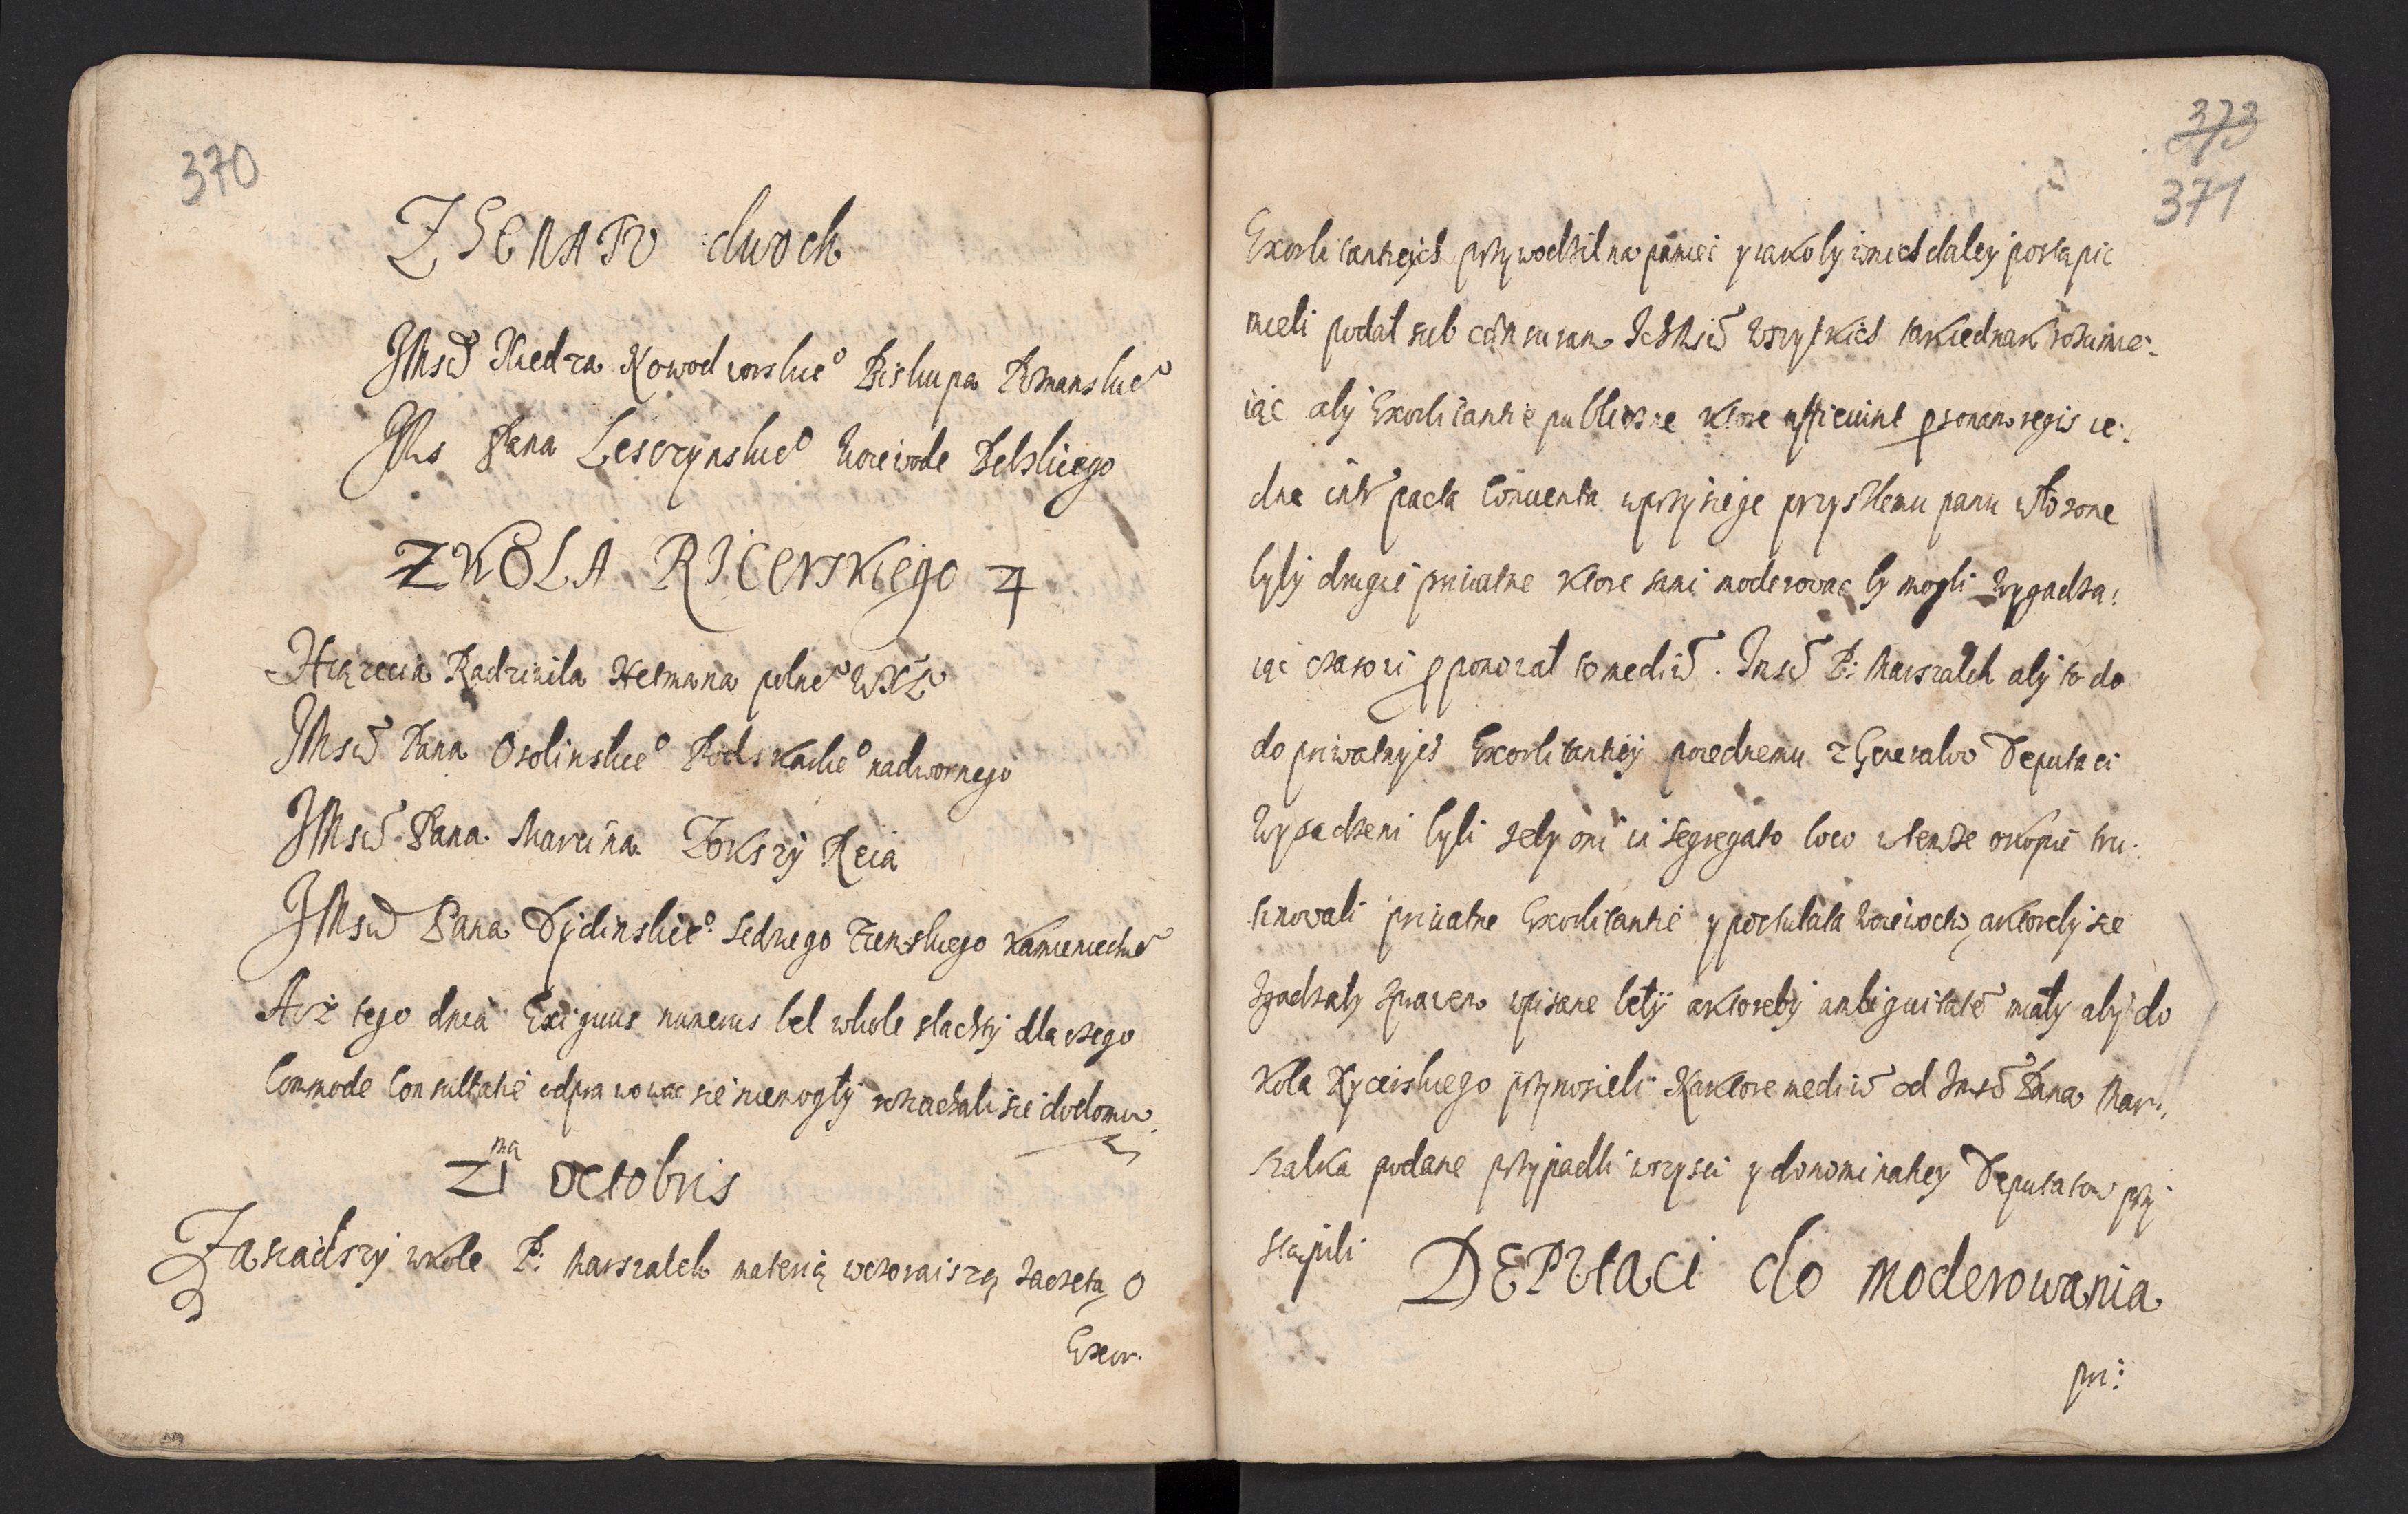 370
Z SENATV dwoch
JMsci Xiedza Nowodworskie° Biskupa Poznanskie°
JMs Pana Lesczynskie° Woiewode Belskiego
Z KOLA RICERSKIEGO 4
Xiązecia Radziwila Hetmana polne° WXL
JMsci Pana Osolinskie° Podskarbie° nadwornego
JMsci Pana Marcina Zokszy Reia
JMsci Pana Dydinskie° Sedzego Zemskiego Kamienieckie°
A iz tego dnia Exiguus numerus bel wkole slachty dla czego
Commode Consultatie odprawowac sie niemogly roziachali sie dodomu.
21ma Octobris
Zasiadszy wkole P: Marszalek materią wczoraiszą zaczetą o
Exor:
373
371
Exorbitantiyich przywodził na pamieć y iakoby wnich daley postąpic
mieli podał sub censuram IchMsciw wszytkich tak iednak rozumie:
iąc aby Exorbitantie publiczne ktore afficiunt personam regis ie:
dne intr pacta conuenta wprzysiege przyszłemu panu włozone
były drugie priuatne ktore sami moderowac by mogli Wygadza:
iąc czasowi proponował to medium. Jmsci P: Marszałek aby to do
do priwatnych Exorbitantiy poiednemu z Generalow Deputaci
Wysadzeni byli zeby oni in segregato loco wtemze okopie tru:
tinowali priuatne Exorbitantie y postulata woiewoctw, a ktoreby sie
zgadzały zprawem wpisane beły a ktoreby ambiguitatem miały aby do
Koła Rycerskiego przynosieli Naktore medium od Jmsci Pana Mar:
szalka podane przypadli wszysci y donominatiey Deputatow przy
stąpili
DEPVtaci do moderowania
pri: